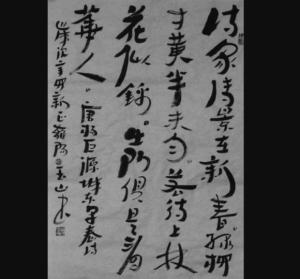 诗家清景在新春绿柳
才黄半未匀。若待上林
花似錦。出门俱是看
華人。唐杨巨源城东早春诗